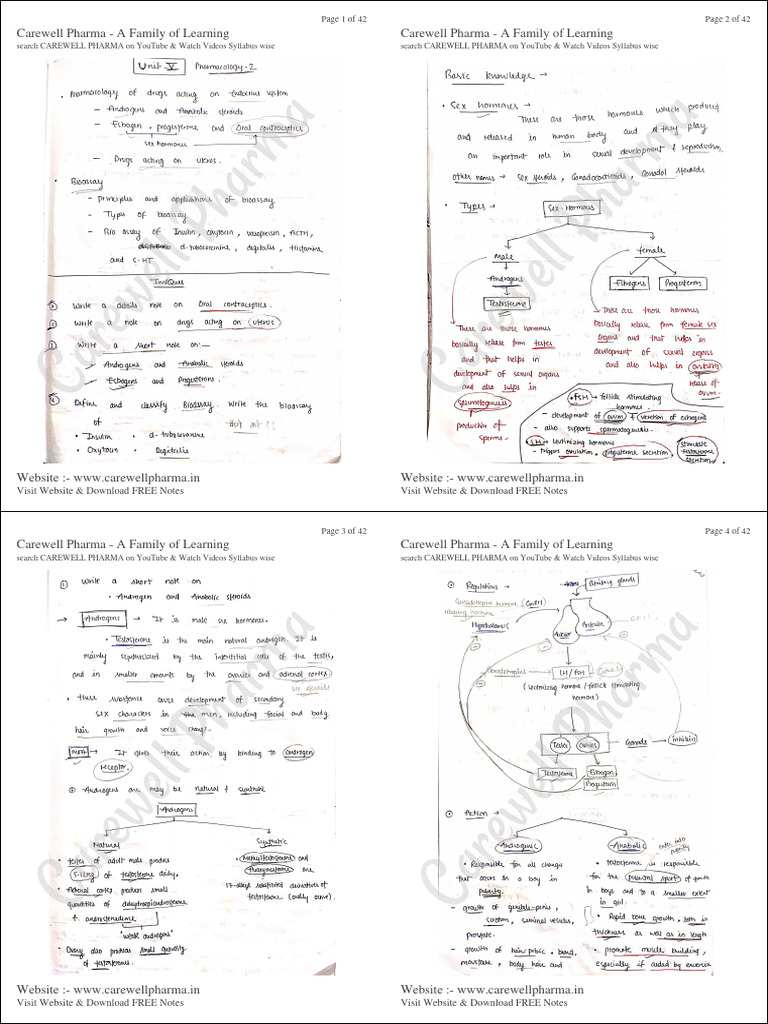 Page 1 of 42
Carewell Pharma - A Family of Learning
search CAREWELL PHARMA on YouTube & Watch Videos Syllabus wise
Unit-V Pharmacology-2
• Pharmacology of drugs acting on Endocrine system
- Androgens and Anabolic steroids
- Estrogen, progesterone and Oral contraceptics
sex hormones
- Drugs acting on uterus.
• Bioassay
- principles and applications of bioassay
- Types of bioassay
- Bio assay of Insulin, oxytocin, vasopressin, ACTH,
d-tubocurarine, digitalis, Histamine
and 5-HT
Imp Ques
① Write a details note on Oral contraceptics.
② Write a note on drugs acting on uterus
③ Write a short note on:-
Androgens and Anabolic steroids
Estrogens and Progesterons.
④ Define and classify Bioassay. Write the bioassay
of
• Insulin • d-tubocurarine
• Oxytocin • Digitalis
Carewell Pharma
Website :- www.carewellpharma.in
Visit Website & Download FREE Notes
Page 2 of 42
Carewell Pharma - A Family of Learning
search CAREWELL PHARMA on YouTube & Watch Videos Syllabus wise
Basic knowledge →
• Sex hormones →
These are those hormones which produced
and released in human body and they play
an important role in sexual development & reproduction.
Other names → Sex steroids, Gonadocorticoids, Gonadal steroids
• Types →
Sex-Hormones
male
female
Androgens
Estrogens Progesteron
Testosterone
These are those hormones
basically release from testes
and that helps in
development of sexual organs
and also helps in
spermatogenesis
production of
sperms.
These are those hormones
basically release from female sex
organs and that helps in
development of sexual organs
and also helps in ovulation
release of
ovum.
• FSH → follicle stimulating
hormones.
- development of ovum & secretion of estrogens
- also supports spermatogenesis.
LH → leutinizing hormones
- triggers ovulation, progesterone secretion,
stimulate
testosterone
secretion
Carewell Pharma
Website :- www.carewellpharma.in
Visit Website & Download FREE Notes
Page 3 of 42
Carewell Pharma - A Family of Learning
search CAREWELL PHARMA on YouTube & Watch Videos Syllabus wise
① Write a short note on
• Androgen and Anabolic steroids
→ Androgens → It is male sex hormones.
• Testosterone is the main natural androgen. It is
mainly synthesized by the interstitial cells of the testis,
and in smaller amounts by the ovaries and adrenal cortex
sex steroids
• these substance cause development of secondary
sex characters in the men, including facial and body
hair growth and voice change.
MOA → It gives their action by binding to androgen
receptor.
• Androgens are may be natural & synthetic
Androgens
Natural
• testes of adult male produce
5-11mg of testosterone daily.
• Adrenal cortex produces small
quantities of dehydroepiandrosterone
& androstenedione
"weak androgens"
• Ovary also produces small quantity
of testosterone.
Synthetic
• Methyltestosterone and
fluoxymesterone are
17-alkyl substituted derivatives of
testosterone (orally active).
Carewell Pharma
Website :- www.carewellpharma.in
Visit Website & Download FREE Notes
Page 4 of 42
Carewell Pharma - A Family of Learning
search CAREWELL PHARMA on YouTube & Watch Videos Syllabus wise
• Regulations →
Pituitary glands
Gonadotropin hormone (GnRH)
releasing hormone
Hypothalamus
Anterior
Posterior
Gonadotropins
LH/FSH
(leutinizing hormone/follicle stimulating
hormone)
Testes Ovaries
Gonads
inhibin
Testosterone
Estrogen
Progesteron
• Action →
Androgenic
• Responsible for all change
that occurs in a boy in
puberty.
- growth of genitals-penis,
scrotum, seminal vesicles,
prostate.
- growth of hair, pubic, beard,
moustache, body hair and
Anabolic
• testosterone is responsible
for the pubertal spurt of growth
in boys and to a smaller extent
in girl.
• Rapid bone growth, both in
thickness as well as in length
• promote muscle building,
especially if aided by exercise
Carewell Pharma
Website :- www.carewellpharma.in
Visit Website & Download FREE Notes